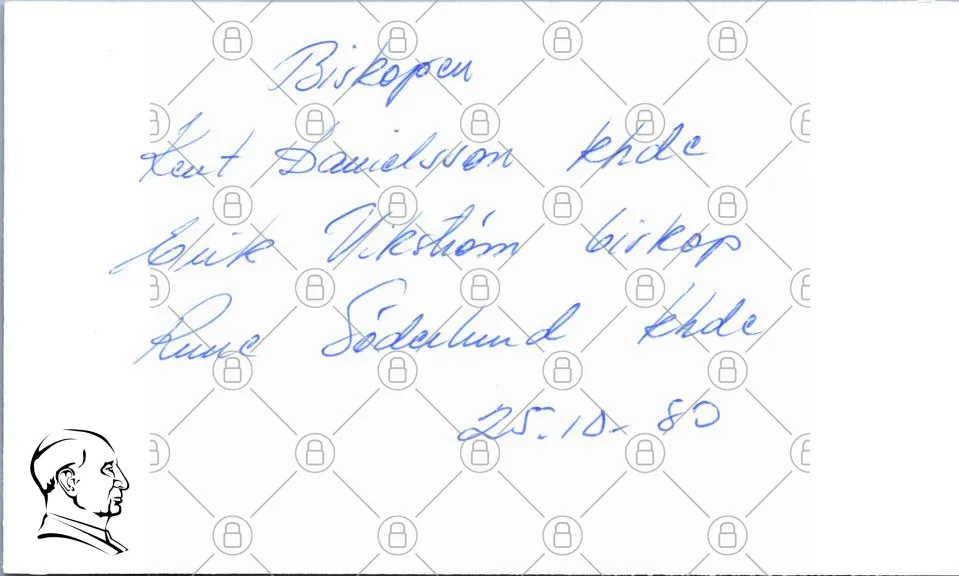 Biskopen
Kent Danielsson khde
Erik Vikström biskop
Rune Söderlund khde
25.10. 80